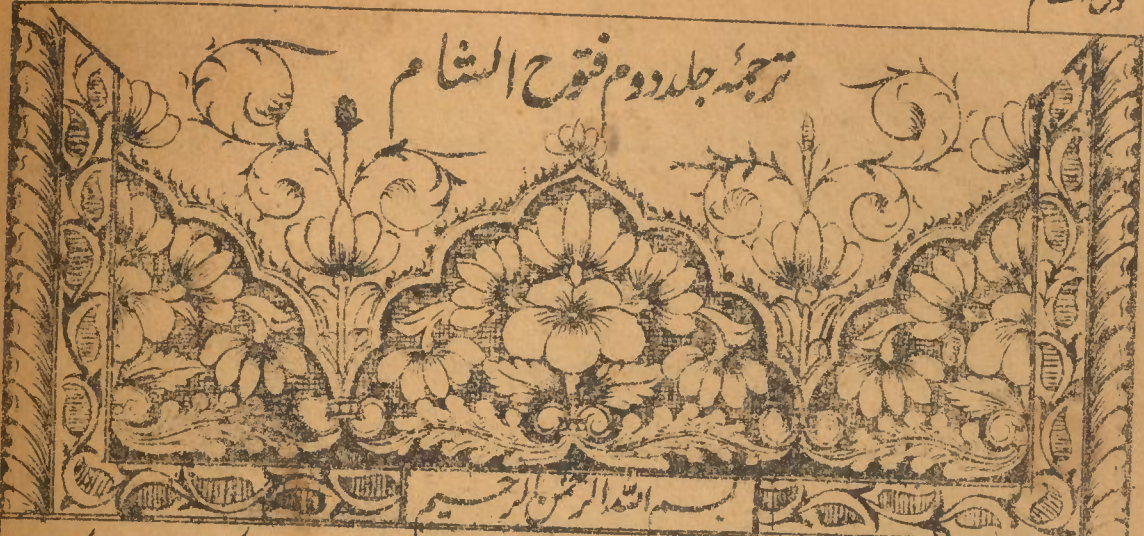 ترجمۂ جلد دوم فتوح الشام
بسم اللہ الرحمٰن الرحیم